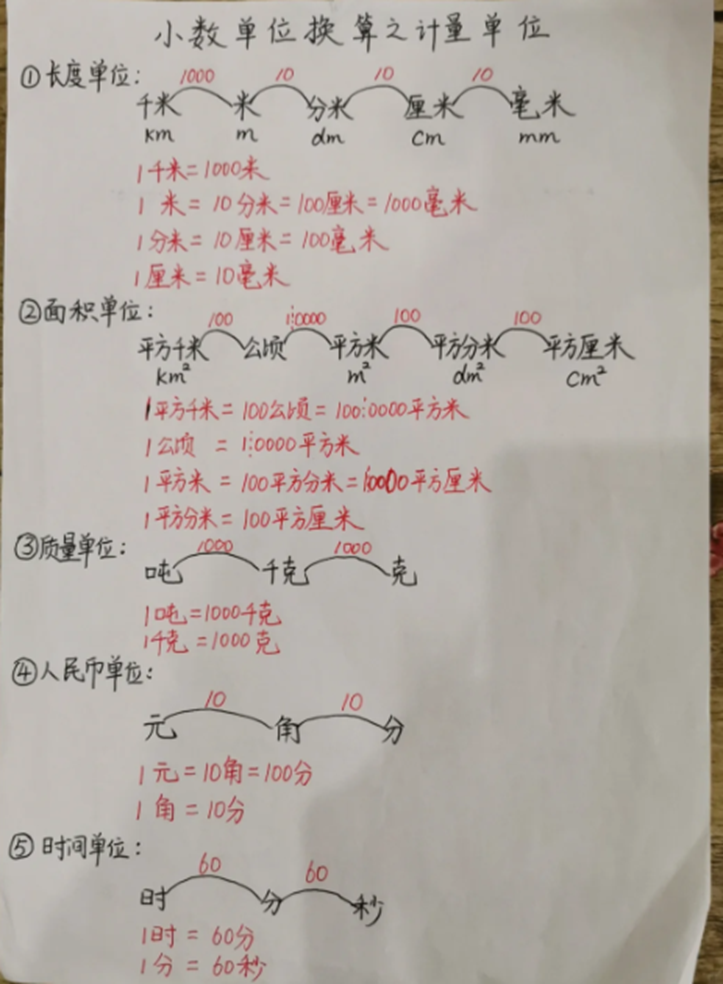 小数单位换算之计量单位
①长度单位:
1000 10 10 10
千米 米 分米 厘米 毫米
km m dm cm mm
1千米=1000米
1 米 = 10分米=100厘米=1000毫米
1分米=10厘米=100毫米
1厘米=10毫米
②面积单位:
100 10000 100 100
平方千米 公顷 平方米 平方分米 平方厘米
km² m² dm² cm²
1平方千米=100公顷=1000000平方米
1公顷 = 10000平方米
1平方米 = 100平方分米=10000平方厘米
1平方分米=100平方厘米
③质量单位:
1000 1000
吨 千克 克
1吨=1000千克
1千克=1000克
④人民币单位:
10 10
元 角 分
1元=10角=100分
1角=10分
⑤时间单位:
60 60
时 分 秒
1时 = 60分
1分 = 60秒